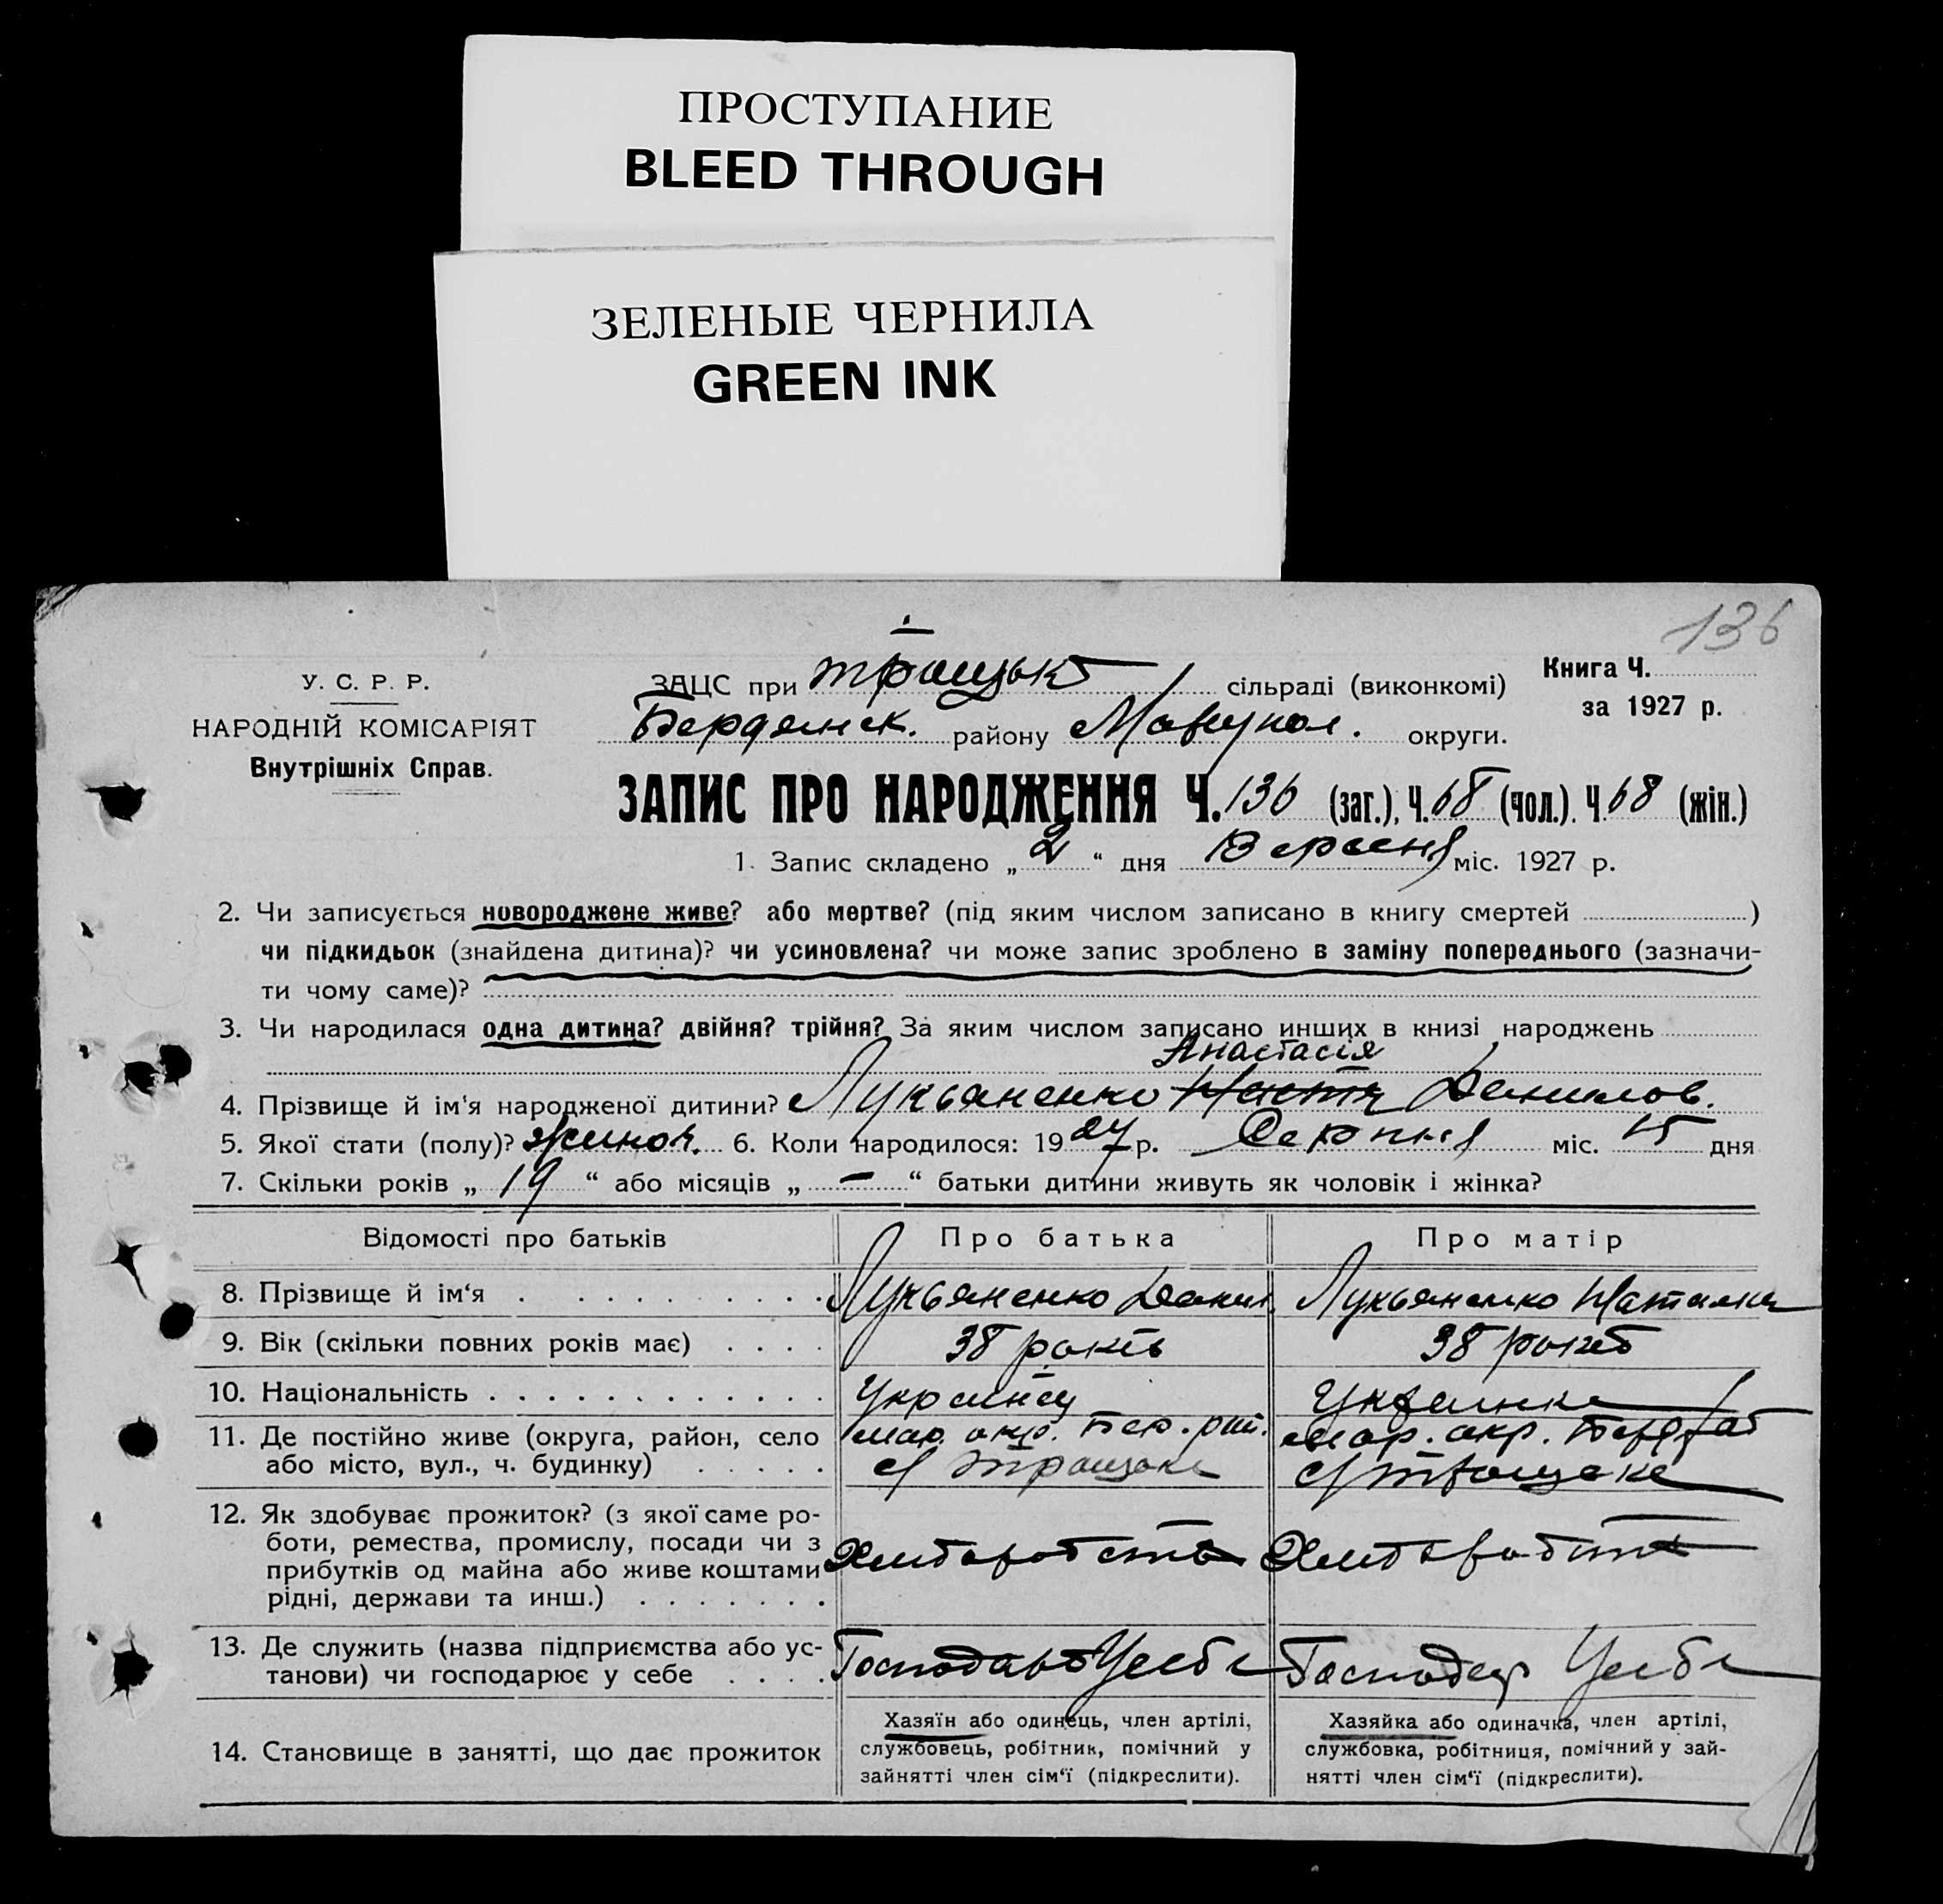 ПРОСТУПАНИЕ
BLEED THROUGH
ЗЕЛЕНЫЕ ЧЕРНИЛА
GREEN INK
136
У. С. Р. Р.
НАРОДНІЙ КОМІСАРІЯТ
Внутрішніх Справ.
ЗАЦС при сільраді (виконкомі)
Книга Ч.
за 1927 р.
Бердянск. району Мавупол. округи.
ЗАПИС ПРО НАРОДЖЕННЯ Ч. 136 (заг.), Ч. 68 (чол.). Ч. 68 (жін.)
1. Запис складено „ 2 “ дня Вересня міс. 1927 р.
2. Чи записується новороджене живе? або мертве? (під яким числом записано в книгу смертей )
чи підкидьок (знайдена дитина)? чи усиновлена? чи може запис зроблено в заміну попереднього (зазначи-
ти чому саме)?
3. Чи народилася одна дитина? двійня? трійня? За яким числом записано инших в книзі народжень
Анастасія
4. Прізвище й ім'я народженої дитини? Лукьяненко Настя Данилов.
5. Якої стати (полу)? жиноч. 6. Коли народилося: 1927 р. Серпня міс. 15 дня
7. Скільки років „ 19 “ або місяців „ — “ батьки дитини живуть як чоловік і жінка?
Відомості про батьків Про батька Про матір
8. Прізвище й ім‘я Лукьяненко Данил. Лукьяненко Наталка
9. Вік (скільки повних років має) 38 років 38 років
10. Національність Українец Українка
11. Де постійно живе (округа, район, село
або місто, вул., ч. будинку)
мар. окр. Бер. рай.
мар. окр.
12. Як здобуває прожиток? (з якої саме ро-
боти, ремества, промислу, посади чи з
прибутків од майна або живе коштами
рідні, держави та инш.)
13. Де служить (назва підприємства або ус-
танови) чи господарює у себе
Господар Усебе Господар Усебе
14. Становище в занятті, що дає прожиток
Хазяїн або одинець, член артілі,
службовець, робітник, помічний у
зайнятті член сім‘ї (підкреслити).
Хазяйка або одиначка, член артілі,
службовка, робітниця, помічний у зай-
нятті член сім‘ї (підкреслити).